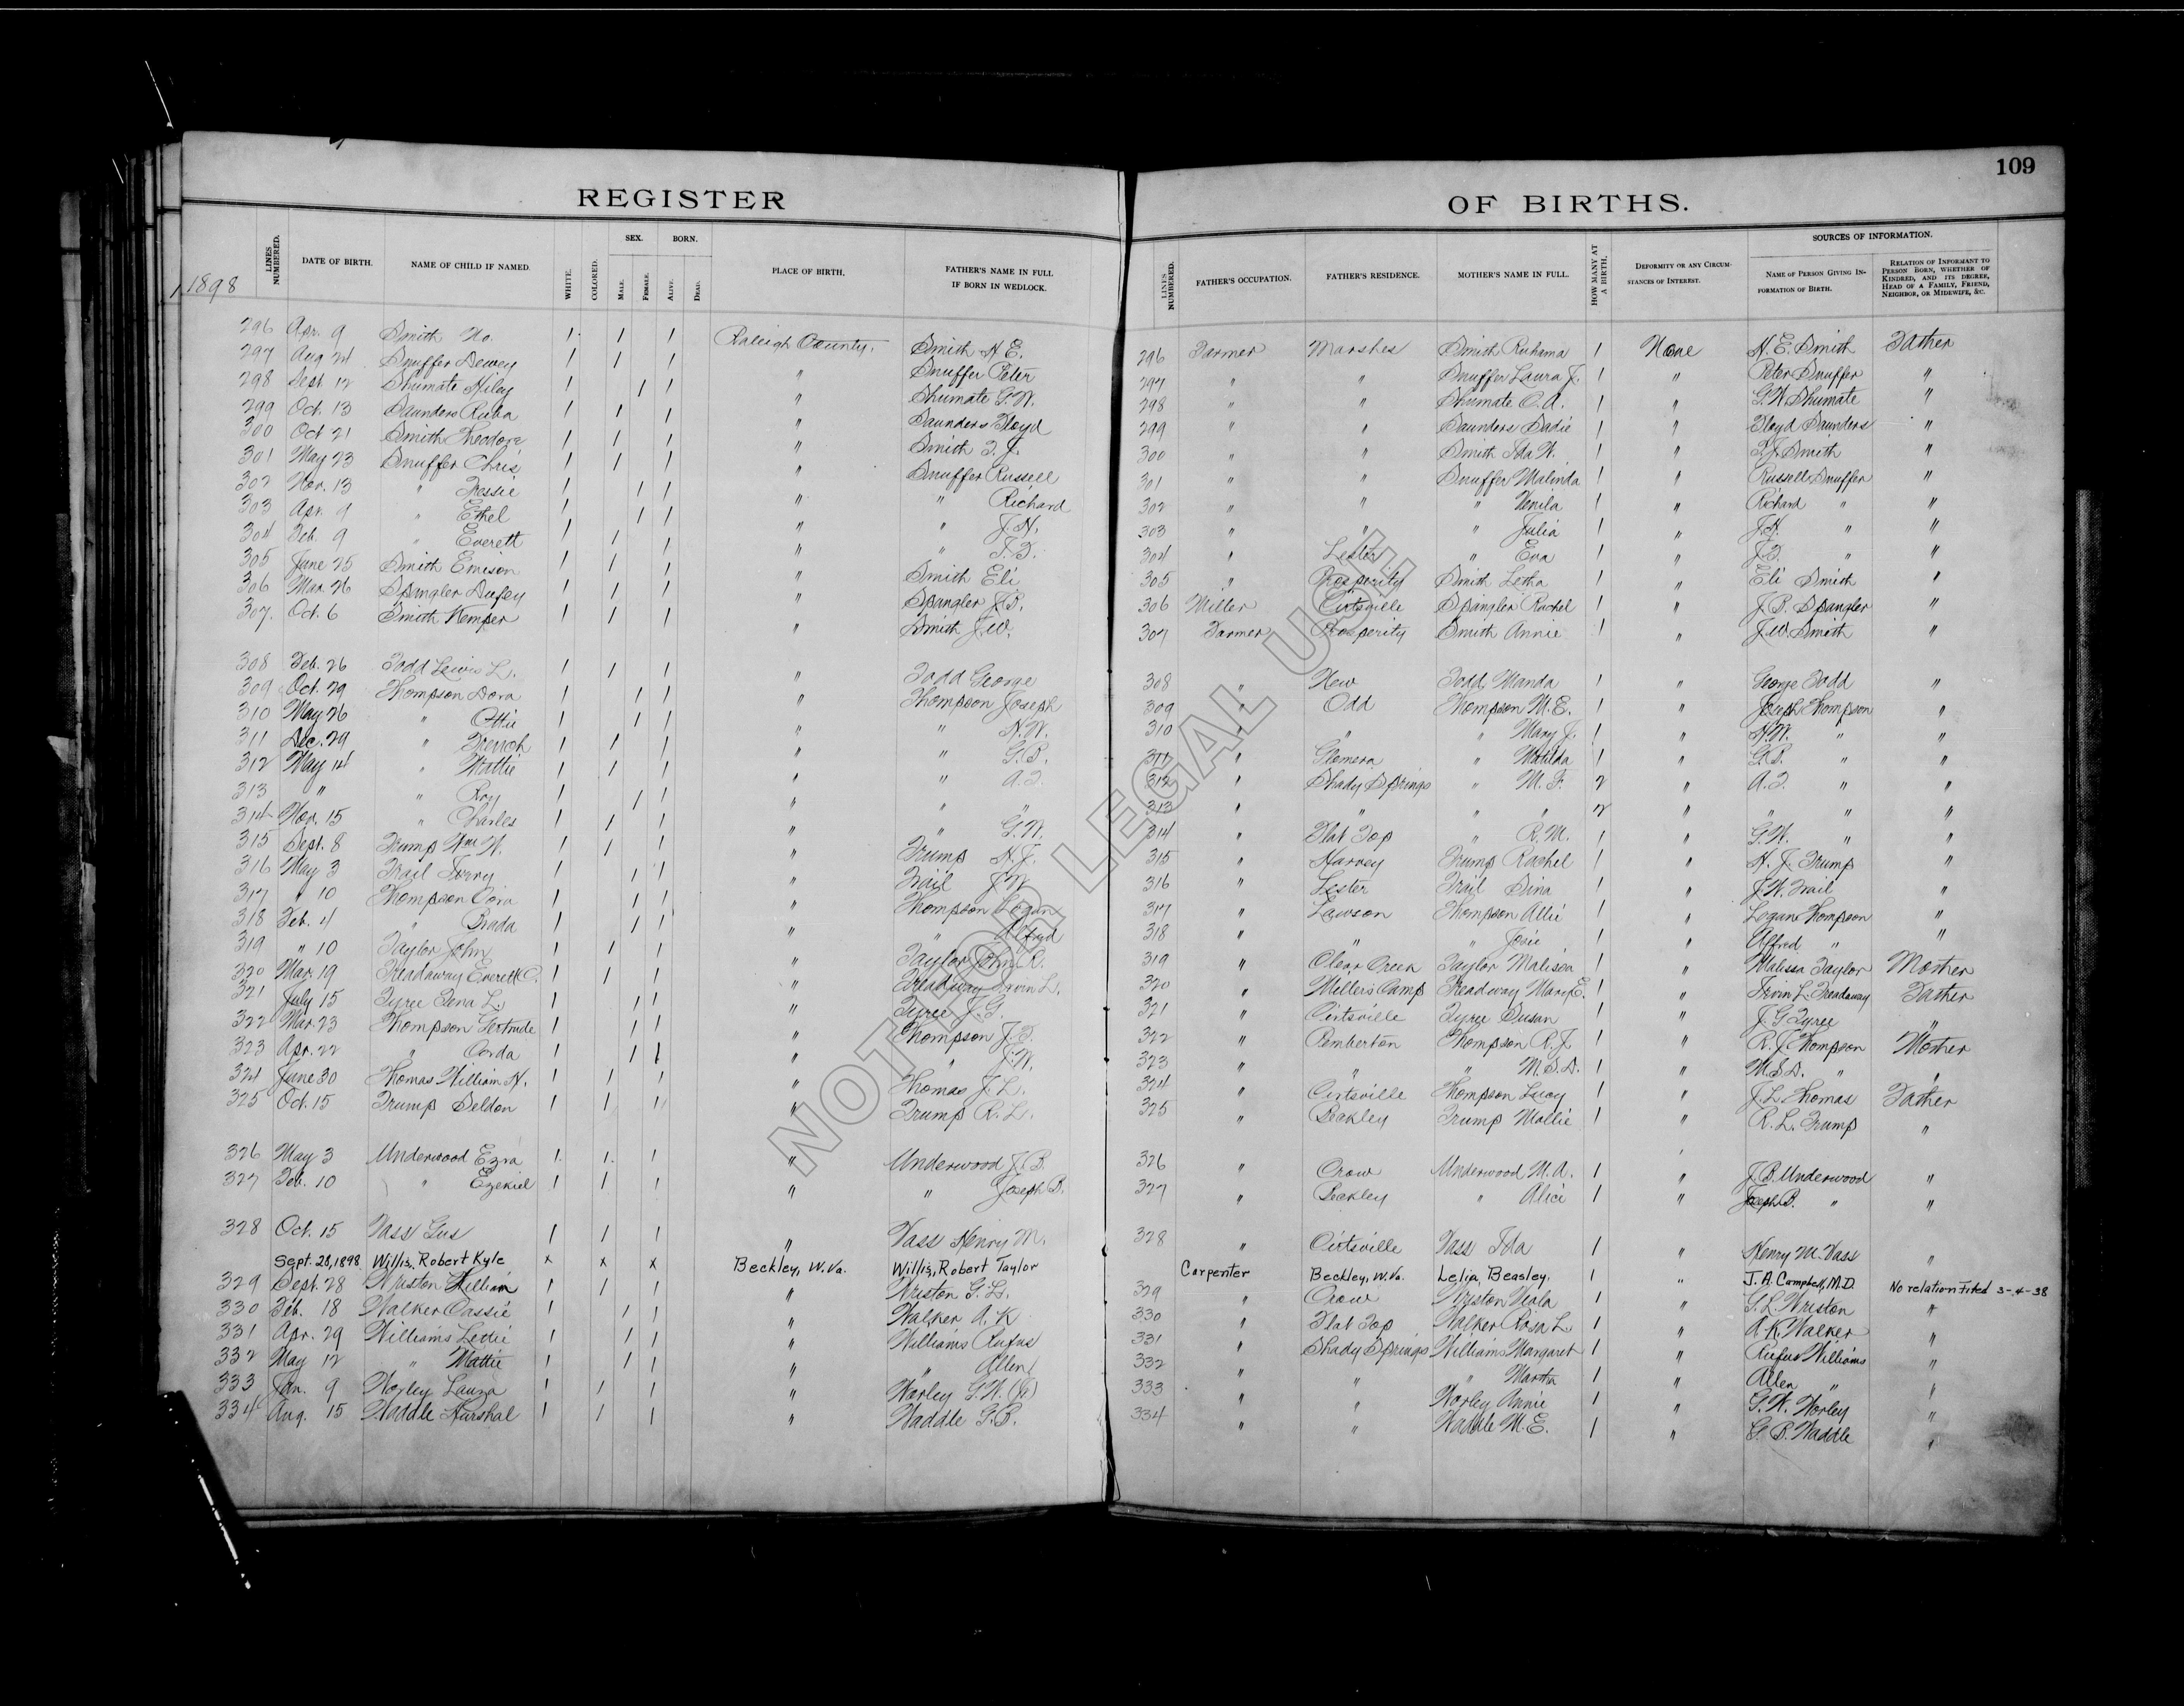 109
REGISTER OF BIRTHS.
1898
LINES NUMBERED. DATE OF BIRTH. NAME OF CHILD IF NAMED. WHITE. COLORED. SEX. MALE. FEMALE. BORN. ALIVE. DEAD. PLACE OF BIRTH. FATHER'S NAME IN FULL IF BORN IN WEDLOCK. LINES NUMBERED. FATHER'S OCCUPATION. FATHER'S RESIDENCE. MOTHER'S NAME IN FULL. HOW MANY AT A BIRTH. DEFORMITY OR ANY CIRCUMSTANCES OF INTEREST. SOURCES OF INFORMATION. NAME OF PERSON GIVING INFORMATION OF BIRTH. RELATION OF INFORMANT TO PERSON BORN, WHETHER OF KINDRED, AND ITS DEGREE, HEAD OF A FAMILY, FRIEND, NEIGHBOR, OR MIDEWIFE, &C.
296 Apr. 9 Smith No. 1 1 1 Raleigh County. Smith H. E. 296 Farmer Marshes Smith Ruhama 1 None H. E. Smith Father
297 Aug 24 Snuffer Dewey 1 1 1 " Snuffer Peter 297 " " Snuffer Laura J. 1 " Peter Snuffer "
298 Sept. 12 Shumate Hiley 1 1 1 " Shumate G. W. 298 " " Shumate C. A. 1 " G. W. Shumate "
299 Oct. 13 Saunders 1 1 1 " Saunders Floyd 299 " " Saunders Sadie 1 " Floyd Saunders "
300 Oct 21 Smith Theodore 1 1 1 " Smith T. J. 300 " " Smith Ida W. 1 " T. J. Smith "
301 May 23 Snuffer Chris 1 1 1 " Snuffer Russell 301 " " Snuffer Malinda 1 " Russell Snuffer "
302 Nov. 13 " Tressie 1 1 1 " " Richard 302 " " " 1 " Richard " "
303 Apr. 9 " Ethel 1 1 1 " " J. H. 303 " " " Julia 1 " J. H. " "
304 Feb. 9 " Everett 1 1 1 " " 304 " Lester " Eva 1 " " "
305 June 25 Smith Emison 1 1 1 " Smith Eli 305 " Prosperity Smith Letha 1 " Eli Smith "
306 Mar. 26 Spangler 1 1 1 " Spangler J. B. 306 Miller Cirtsville Spangler Rachel 1 " J. B. Spangler "
307. Oct. 6 Smith Kemper 1 1 1 " Smith J. W. 307 Farmer Prosperity Smith Annie 1 " J. W. Smith "
308 Feb. 26 Todd Lewis L. 1 1 1 " Todd George 308 " New Todd Manda 1 " George Todd "
309 Oct. 29 Thompson Dora 1 1 1 " Thompson Joseph 309 " Odd Thompson M. E. 1 " Joseph Thompson "
310 May 26 " Ottie 1 1 1 " " H. W. 310 " " " Mary J. 1 " H. W. " "
311 Dec. 29 " French 1 1 1 " " G. B. 311 " Glomera " Matilda 1 " G. B. " "
312 May 14 " Mattie 1 1 1 " " A. T. 312 " Shady Springs " M. F. 2 " A. T. " "
313 " " Roy 1 1 1 " " " 313 " " " " 2 " " " "
314 Nov. 15 " Charles 1 1 1 " " G. W. 314 " Flat Top " R. M. 1 " G. W. " "
315 Sept. 8 Trump Wm W. 1 1 1 " Trump H. J. 315 " Harvey Trump Rachel 1 " H. J. Trump "
316 May 3 Trail 1 1 1 " Trail J W 316 " Lester Trail Sina 1 " J. W. Trail "
317 " 10 Thompson Cora 1 1 1 " Thompson Logan 317 " Lawson Thompson Allie 1 " Logan Thompson "
318 Feb. 4 " Brada 1 1 1 " " Alfred 318 " " " Josie 1 " Alfred " "
319 " 10 Taylor John 1 1 1 " Taylor John R. 319 " Clear Creek Taylor Malissa 1 " Malissa Taylor Mother
320 Mar. 19 Treadaway Everett C. 1 1 1 " Treadway Irvin L. 320 " Millers Camp Treadway Mary E. 1 " Irvin L. Treadaway Father
321 July 15 Tyree Tena L. 1 1 1 " Tyree J. G. 321 " Cirtsville Tyree Susan 1 " J. G Tyree "
322 Mar. 23 Thompson Gertrude 1 1 1 " Thompson J. T. 322 " Pemberton Thompson R. J. 1 " R. J. Thompson Mother
323 Apr. 22 " Corda 1 1 1 " " J. W. 323 " " " M. S. D. 1 " M. S. D. " "
324 June 30 Thomas William H. 1 1 1 " Thomas J. L. 324 " Cirtsville Thompson Lucy 1 " J. L. Thomas Father
325 Oct. 15 Trump Seldon 1 1 1 " Trump R. L. 325 " Beckley Trump Mollie 1 " R. L. Trump "
326 May 3 Underwood Ezra 1 1 1 " Underwood J. B. 326 " Crow Underwood M. A. 1 " J. B. Underwood "
327 Feb. 10 " Ezekiel 1 1 1 " " Joseph B. 327 " Beckley " Alice 1 " Joseph B. " "
328 Oct. 15 Vass Gus 1 1 1 " Vass Henry M. 328 " Cirtsville Vass Ida 1 " Henry M. Vass "
Sept. 28, 1898 Willis, Robert Kyle x x x Beckley, W. Va. Willis, Robert Taylor Carpenter Beckley, W. Va. Lelia, Beasley. 1 " J. A. Campbell, M.D. No relation Filed 3-4-38
329 Sept. 28 Wriston William 1 1 1 " Wriston G. L. 329 " Crow Wriston Viola 1 " G. L. Wriston "
330 Feb. 18 Walker Cassie 1 1 1 " Walker A. K 330 " Flat Top Walker Rosa L. 1 " A. K. Walker "
331 Apr. 29 Williams 1 1 1 " Williams Rufus 331 " Shady Springs Williams Margaret 1 " Rufus Williams "
332 May 12 " Mattie 1 1 1 " " Allen 332 " " " Martha 1 " Allen " "
333 Jan. 9 Worley Laura 1 1 1 " Worley G. W. (Jr) 333 " " Worley Annie 1 " G. W. Worley "
334 Aug. 15 Waddle Hurshal 1 1 1 " Waddle G. B. 334 " " Waddle M. E. 1 " G. B. Waddle "
NOT FOR LEGAL USE